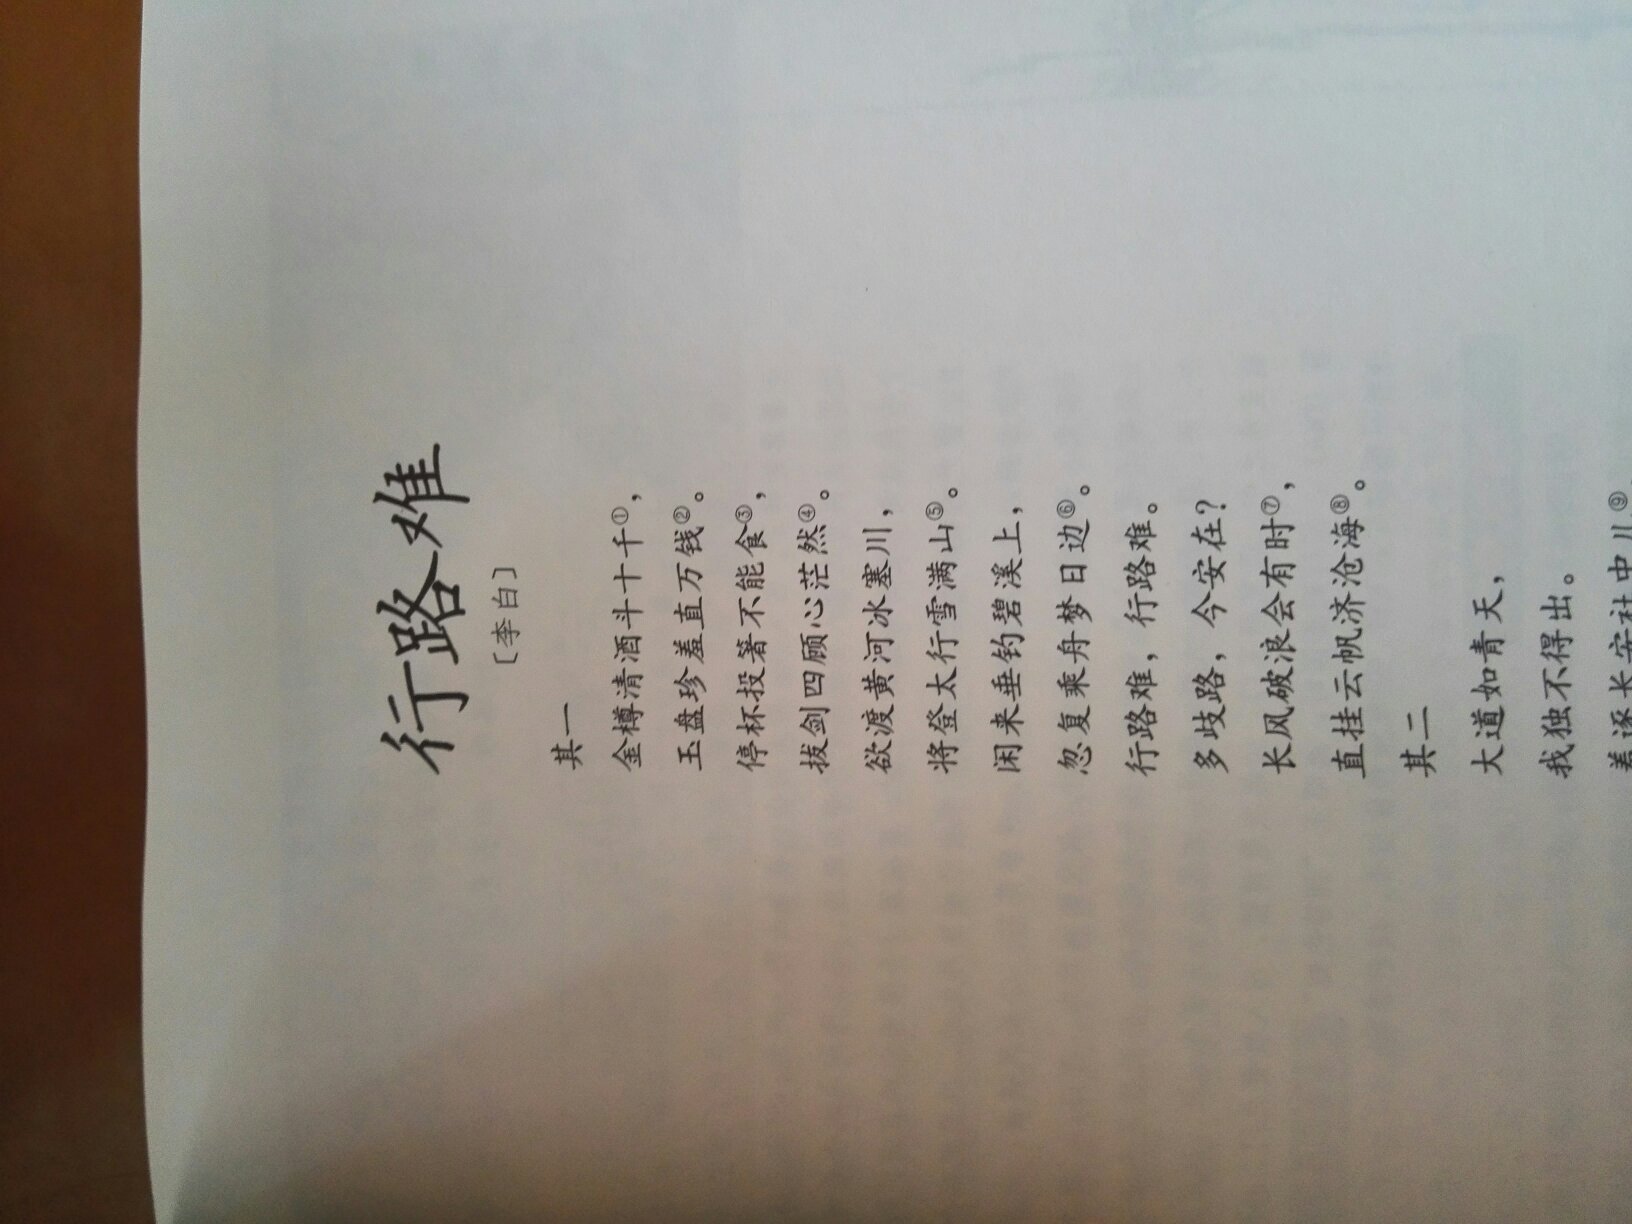 行路难
〔李白〕
其一
金樽清酒斗十千①，
玉盘珍羞直万钱②。
停杯投箸不能食③，
拔剑四顾心茫然④。
欲渡黄河冰塞川，
将登太行雪满山⑤。
闲来垂钓碧溪上，
忽复乘舟梦日边⑥。
行路难，行路难。
多歧路，今安在？
长风破浪会有时⑦，
直挂云帆济沧海⑧。
其二
大道如青天，
我独不得出。
羞逐长安社中儿⑨